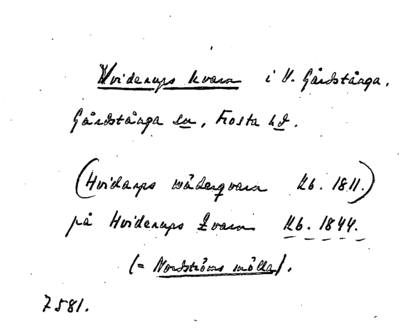 Hviderups kvarn i V. Gårdstånga.
Gårdstånga sn, Frosta hd.
(Hvidarps wäderqvarn Kb. 1811.)
på Hviderups qvarn Kb. 1844.
(= Nordströms mölla).
7581.